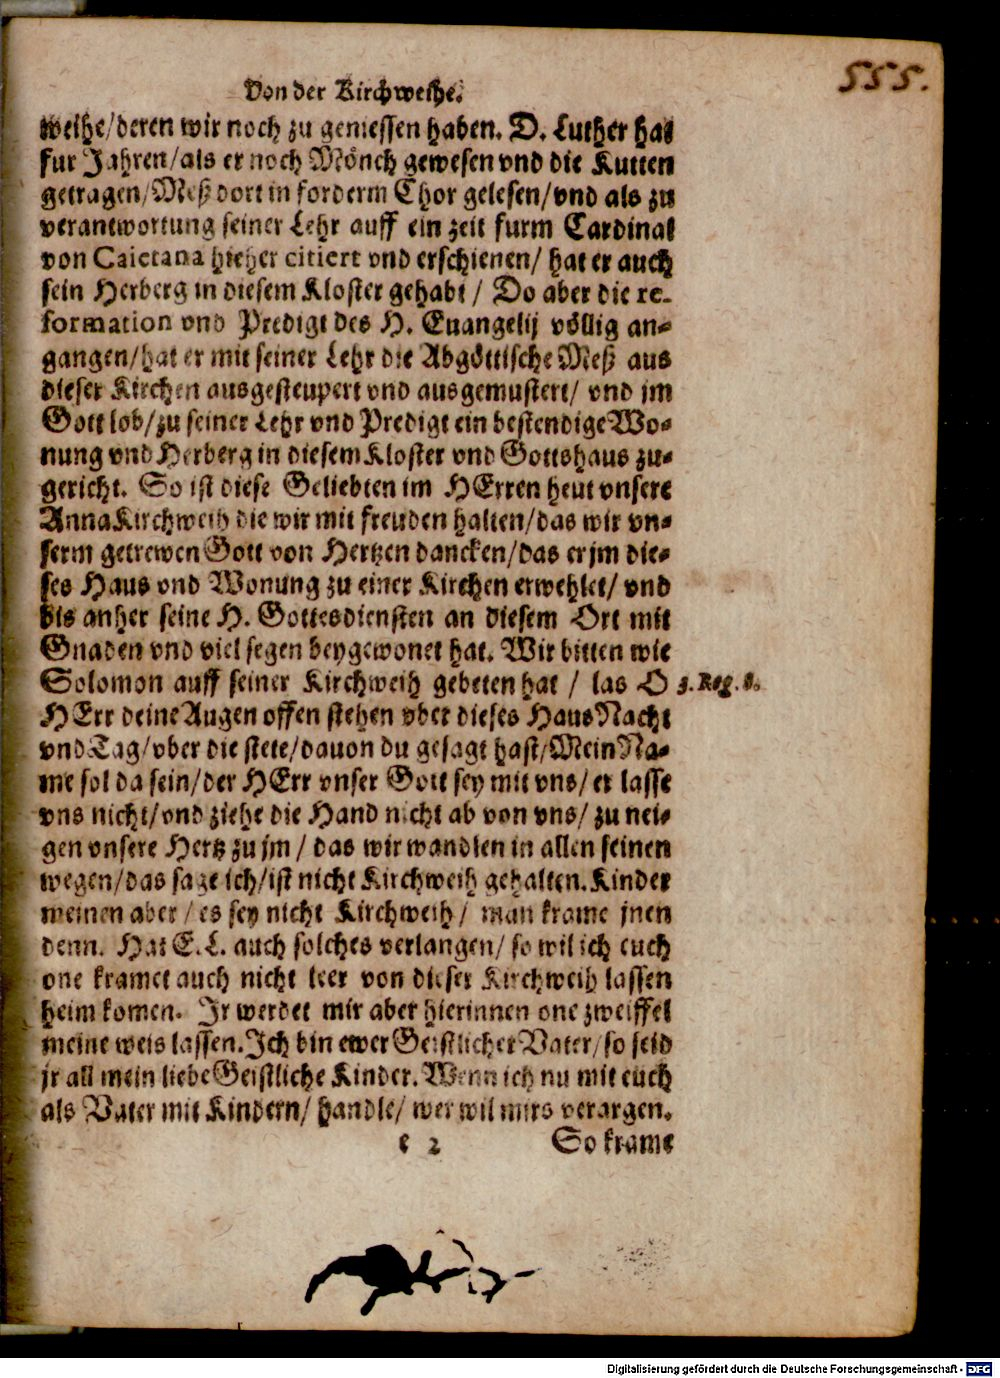 555.
Von der Kirchweihe.
weihe/deren wir noch zu geniessen haben. D. Luther hat
fur Jahren/als er noch Mönch gewesen vnd die Kutten
getragen/Meß dort in forderm Chor gelesen/vnd als zu
verantwortung seiner Lehr auff ein zeit furm Cardinal
von Caietana hieher citiert vnd erschienen/ hat er auch
sein Herberg in diesem Kloster gehabt / Do aber die re-
formation vnd Predigt des H. Euangelij völlig an-
gangen/hat er mit seiner Lehr die Abgöttische Meß aus
dieser Kirchen ausgesteupert vnd ausgemustert/ vnd jm
Gott lob/zu seiner Lehr vnd Predigt ein bestendige Wo-
nung vnd Herberg in diesem Kloster vnd Gottshaus zu-
gericht. So ist diese Geliebten im HErren heut vnsere
Anna Kirchweih die wir mit freuden halten/das wir vn-
serm getrewen Gott von Hertzen dancken/das er jm die-
ses Haus vnd Wonung zu einer Kirchen erwehlet/ vnd
bis anher seine H. Gottesdiensten an diesem Ort mit
Gnaden vnd viel segen beygewonet hat. Wir bitten wie
Solomon auff seiner Kirchweih gebeten hat / las O 3. Reg. 8.
HErr deine Augen offen stehen vber dieses Haus Nacht
vnd Tag/vber die stete/dauon du gesagt hast/Mein Na-
me sol da sein/der HErr vnser Gott sey mit vns/ er lasse
vns nicht/vnd ziehe die Hand nicht ab von vns/ zu nei-
gen vnsere Hertz zu jm / das wir wandlen in allen seinen
wegen/das sage ich/ist nicht Kirchweih gehalten. Kinder
meinen aber / es sey nicht Kirchweih / man krame jnen
denn. Hat E. L. auch solches verlangen/ so wil ich euch
one kramet auch nicht leer von dieser Kirchweih lassen
heim komen. Ir werdet mir aber hierinnen one zweiffel
meine weis lassen. Ich bin ewer Geistlicher Vater/so seid
jr all mein liebe Geistliche Kinder. Wenn ich nu mit euch
als Vater mit Kindern/ handle/ wer wil mirs verargen.
e 2 So krame
Digitalisierung gefördert durch die Deutsche Forschungsgemeinschaft - DFG